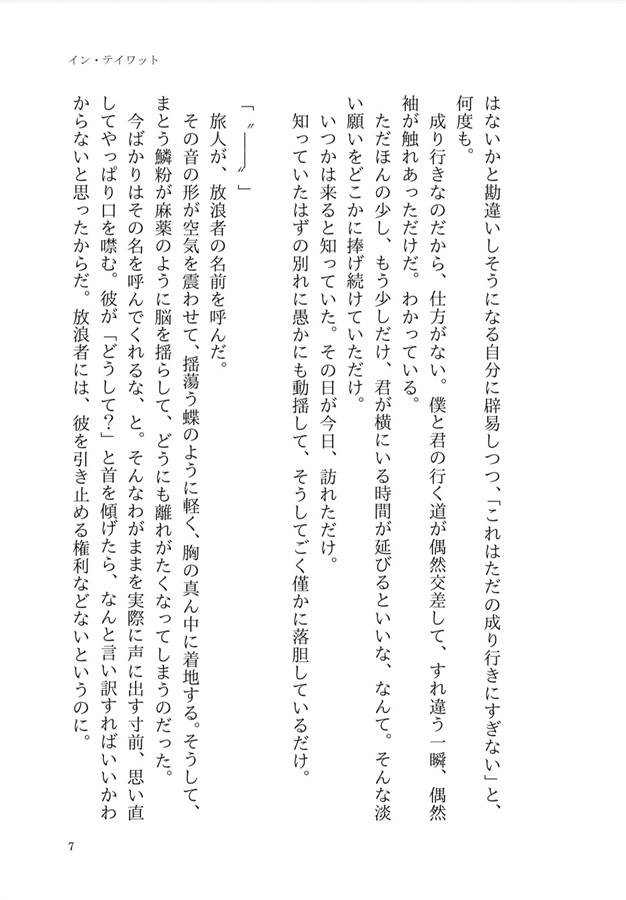 イン・テイワット
はないかと勘違いしそうになる自分に辟易しつつ、「これはただの成り行きにすぎない」と、
何度も。
　成り行きなのだから、仕方がない。僕と君の行く道が偶然交差して、すれ違う一瞬、偶然
袖が触れあっただけだ。わかっている。
　ただほんの少し、もう少しだけ、君が横にいる時間が延びるといいな、なんて。そんな淡
い願いをどこかに捧げ続けていただけ。
　いつかは来ると知っていた。その日が今日、訪れただけ。
　知っていたはずの別れに愚かにも動揺して、そうしてごく僅かに落胆しているだけ。
「〝――〟」
　旅人が、放浪者の名前を呼んだ。
　その音の形が空気を震わせて、揺蕩う蝶のように軽く、胸の真ん中に着地する。そうして、
まとう鱗粉が麻薬のように脳を揺らして、どうにも離れがたくなってしまうのだった。
　今ばかりはその名を呼んでくれるな、と。そんなわがままを実際に声に出す寸前、思い直
してやっぱり口を噤む。彼が「どうして？」と首を傾げたら、なんと言い訳すればいいかわ
からないと思ったからだ。放浪者には、彼を引き止める権利などないというのに。
7